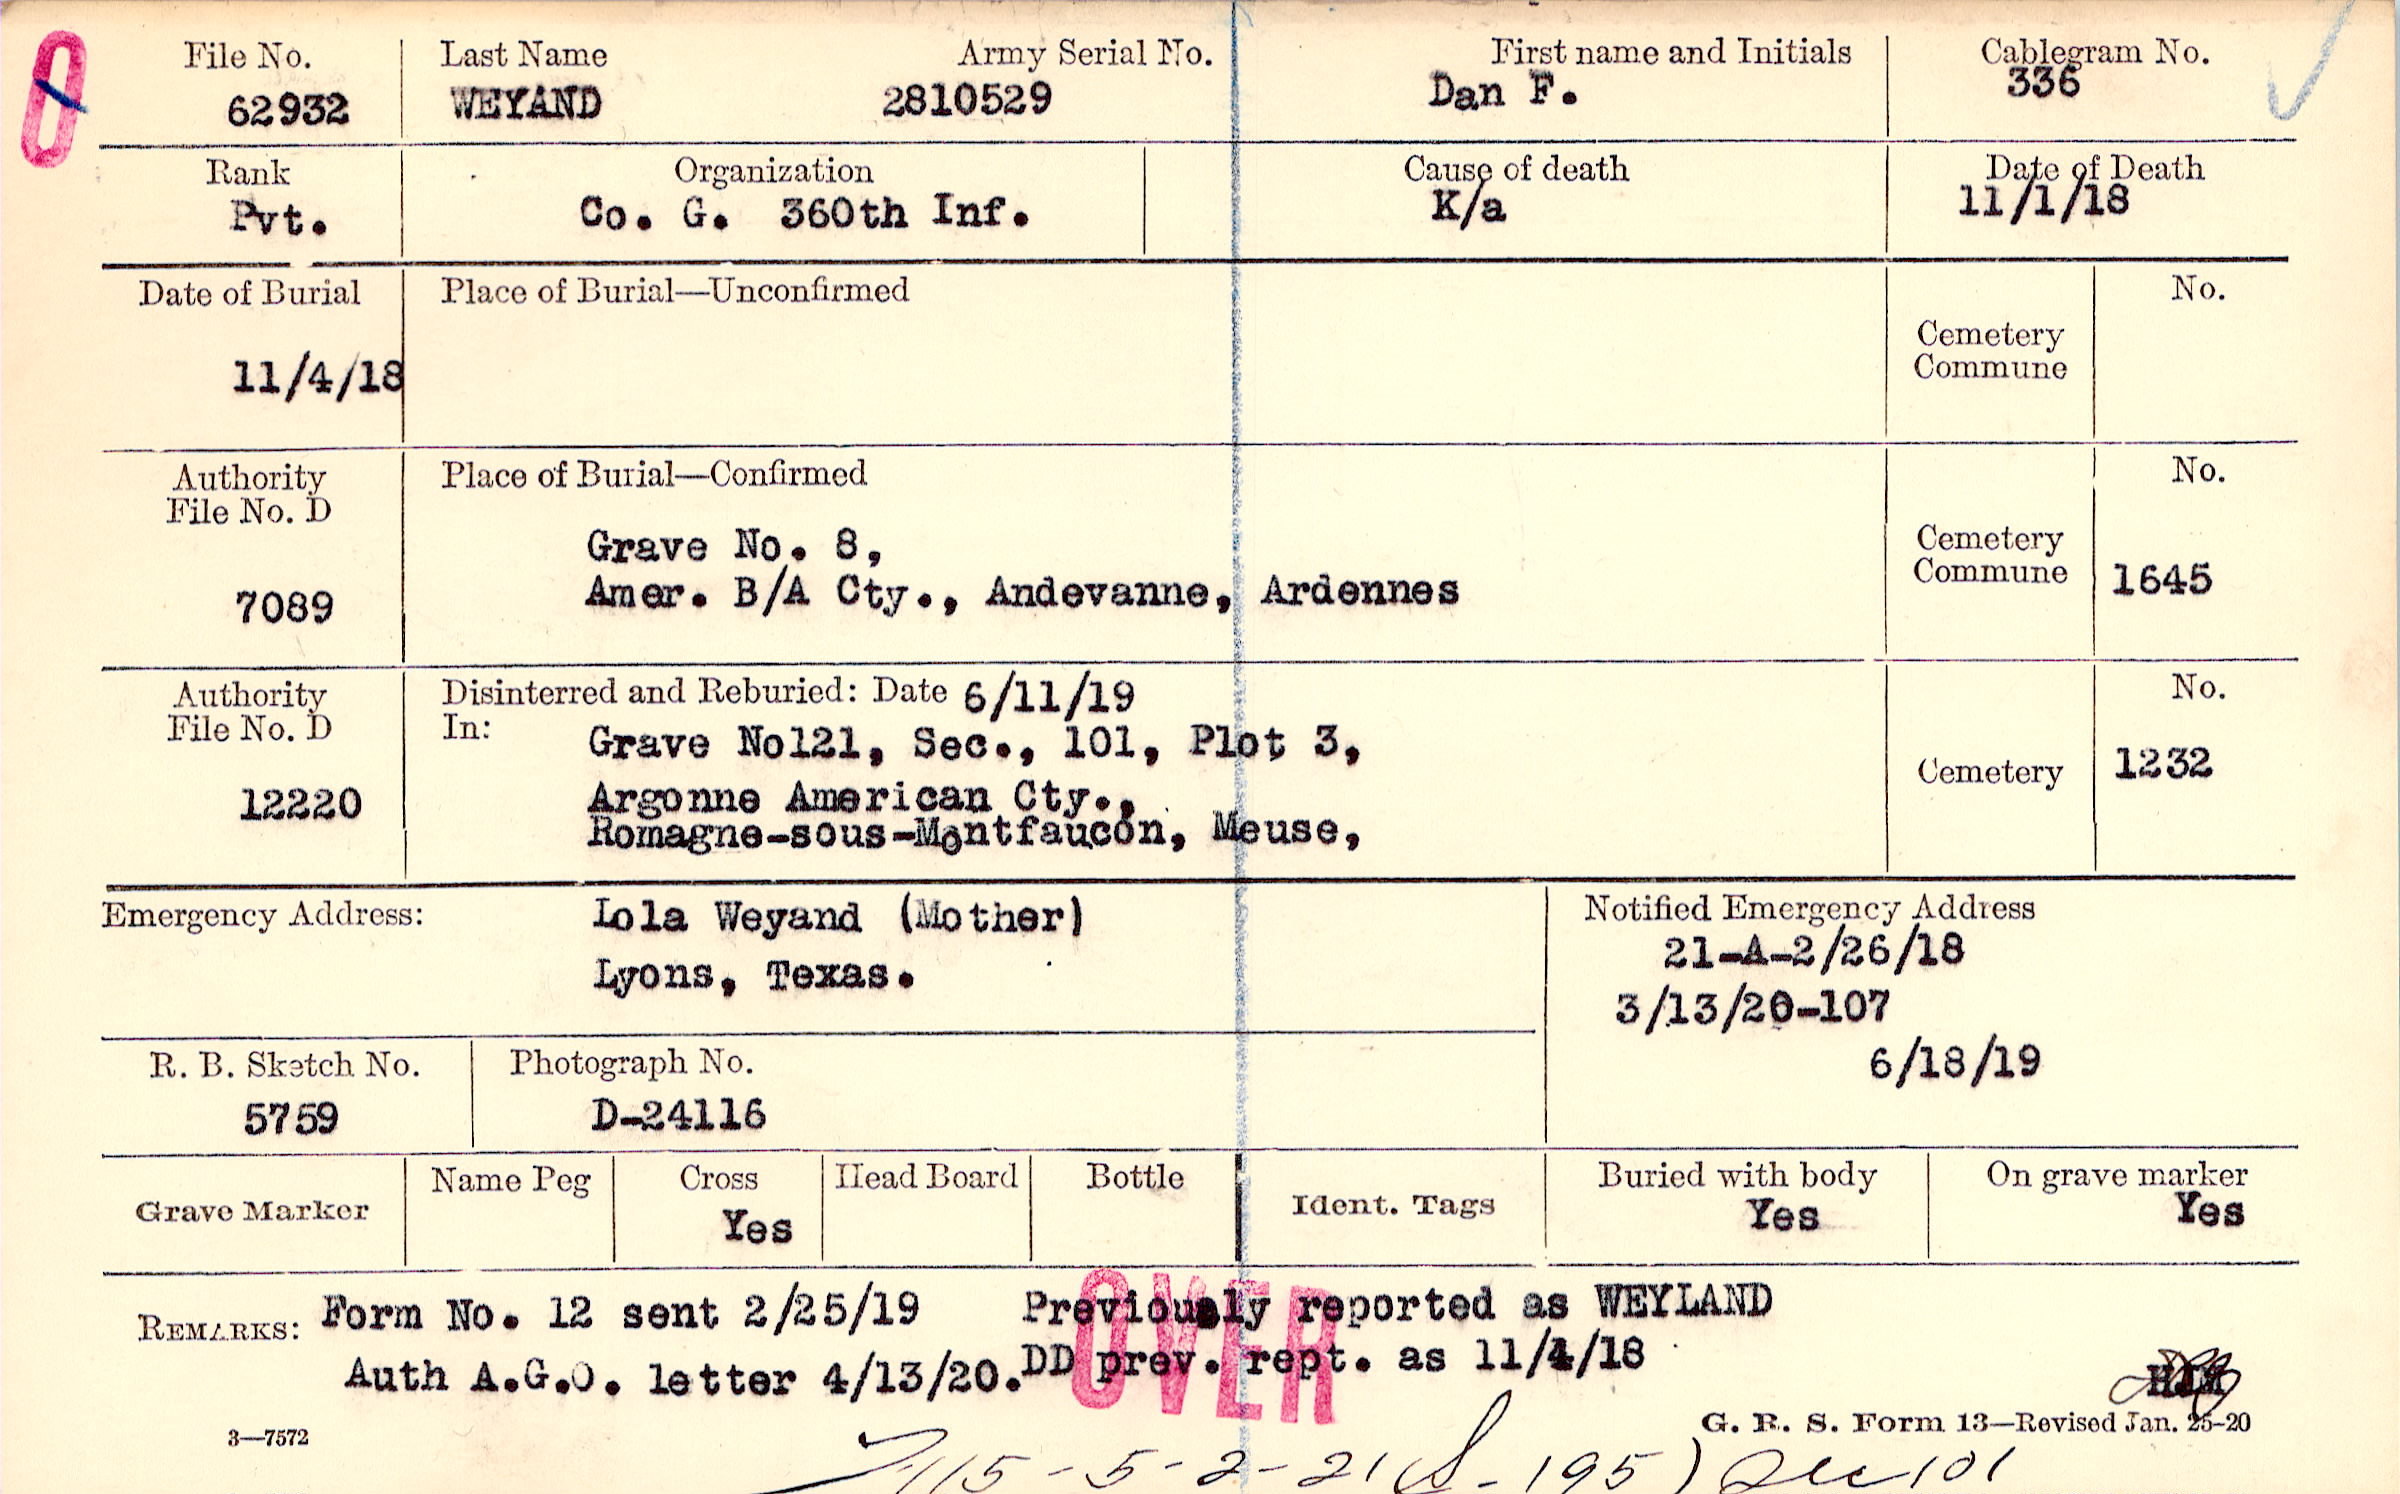 File No.
62932
Last Name
WEYAND
Army Serial No.
2810529
First name and Initials
Dan F.
Cablegram No.
336
Rank
Pvt.
Organization
Co. G. 360th Inf.
Cause of death
K/a
Date of Death
11/1/18
Date of Burial
11/4/18
Place of Burial—Unconfirmed
Cemetery
Commune
No.
Authority
File No. D
7089
Place of Burial—Confirmed
Grave No. 8,
Amer. B/A Cty., Andevanne, Ardennes
Cemetery
Commune
No.
1645
Authority
File No. D
12220
Disinterred and Reburied: Date 6/11/19
In: Grave No121, Sec., 101, Plot 3,
Argonne American Cty.,
Romagne-sous-Montfaucon, Meuse,
Cemetery
No.
1232
Emergency Address:
Lola Weyand (Mother)
Lyons, Texas.
Notified Emergency Address
21-A-2/26/18
3/13/20-107
6/18/19
R. B. Sketch No.
5759
Photograph No.
D-24116
Grave Marker
Name Peg
Cross
Yes
Head Board
Bottle
Ident. Tags
Buried with body
Yes
On grave marker
Yes
REMARKS: Form No. 12 sent 2/25/19 Previously reported as WEYLAND
Auth A.G.O. letter 4/13/20. DD prev. rept. as 11/4/18
OVER
G. R. S. Form 13—Revised Jan. 25-20
3—7572
115-5-2-21 (S-195) Sec 101